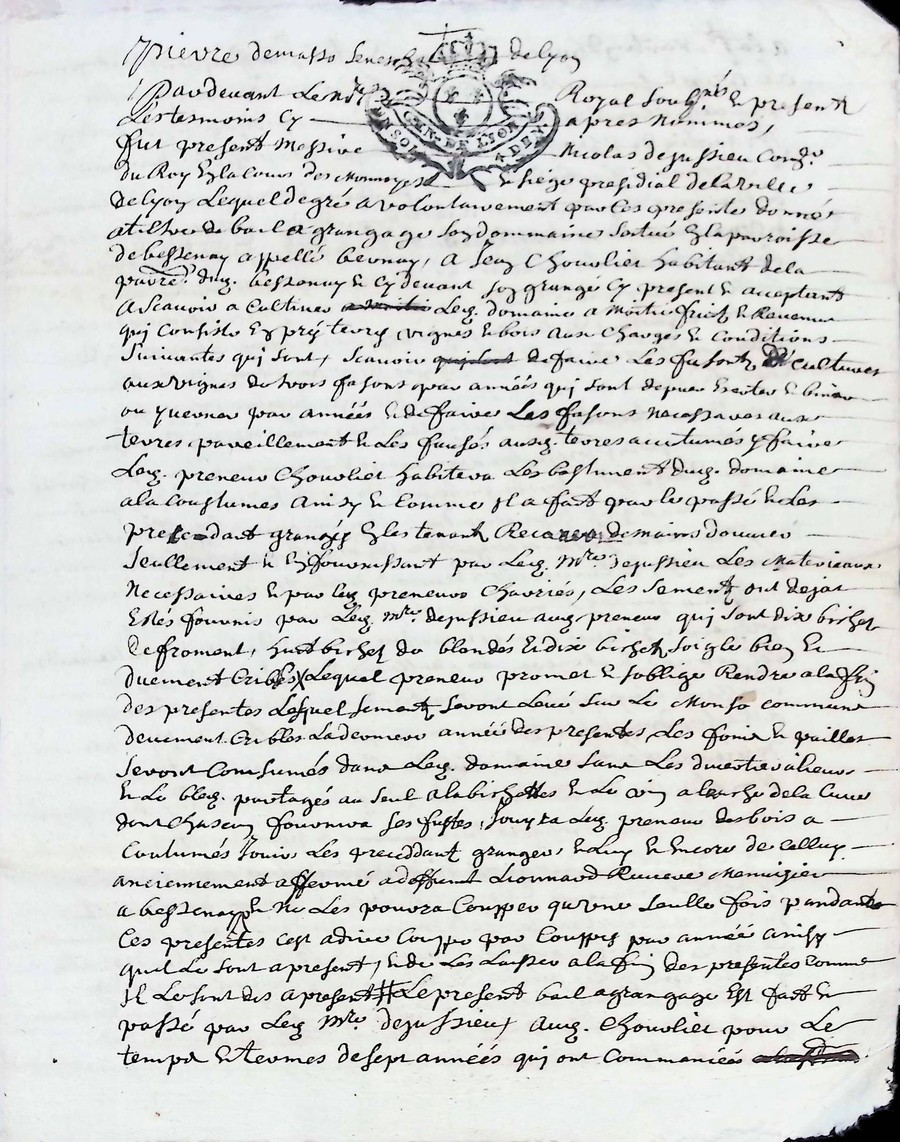 pierre demasso Seneschal de Lyon
Pardevant Le No.re Royal Soubs.né & present
Les tesmoins Cy apres Nommes,
fut present Messire Nicolas dejussieu Con.er
du Roy En la Cours des Monnoyes & siege presidial de la ville
de Lyon Lequel de gré a volontairement par Ces presente donné
a tiltre de bail a grangage son dommaine scitué En la paroisse
de bessenay appellé bernay, a Jean Chovliet habitant de la
parre. dud. bessenay & Cy devant son granger Cy present & acceptant
A Scavoir a Cultiver Led. domaine a Moitié fruict & Revenu
qui Consiste En prés terres vignes & bois aux Charges & Conditions
Suivantes qui sont, Scavoir de faire Les fasons & Cultures
aux vignes de trois fasons par années qui sont & biner
par années & de faire Les fasons Necessaires aux
terres pareillement & Les aux terres accutumés y faire
Led. preneur Chovliet habitera Les bastiment dud. domaine
a la Coustumes ainsy & Comme Il a fait par le passé & Les
precedant grangers En les tenant de maims d'ouvres
Seullement & En fournissant par Led. Mre. dejussieu Les Materieaux
Necessaires & par led. preneur Charriés, Les Sement ont dejat
Estés fournis par Led. Mre. dejussieu aud. preneur qui sont dix bichet
de froment, huit bichet de blondés & dix bichet soigle bien &
duement Criblés Lequel preneur promet & soblige Rendre a la fin
des presentes Lesquel sement seront Levé sur Le Monso commun
deuement Cribles La derniere année des presentes, Les foins & pailles
Seront Consumés dans Led. domaine sans Les divertir allieurs
& Le bled. partagés au seul a la bichette & Le vin a la de la Cuve
dont Chascun fournira ses futtes, Led. preneur des bois a
Coutumés Jouir Les precedant granger & Luy & Encore de Celluy
anciennement affermé a deffunt Lionnard Riviere Menuisier
a bessenay & Ne Les poura Coupper qu'une seulle fois pandant
Ces presentes cest a dire Couppe par Couppes par année ainsy
quil Le sont a present, & de Les Laisser a la fin des presentes comme
Il Le sont dès a present Le present bail a grangage Est fait &
passé par Led. Mre. dejussieu, aud. Chovliet pour Le
temps & termes de sept années qui ont Commancées